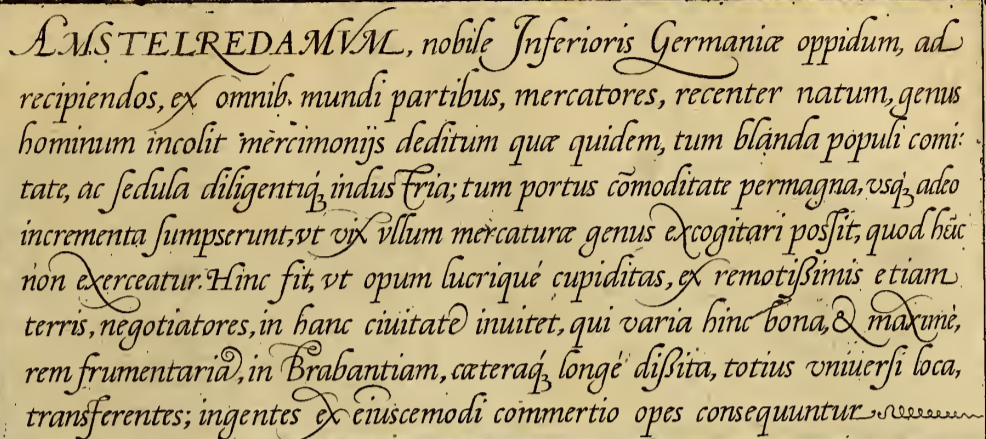 AMSTELREDAMVM, nobile Inferioris Germaniæ oppidum, ad
recipiendos, ex omnib. mundi partibus, mercatores, recenter natum, genus
hominum incolit mercimonijs deditum quæ quidem, tum blanda populi comi:
tate, ac ſedula diligentiq́ꝫ induſtria; tum portus cõmoditate permagna, vsq́ꝫ adeo
incrementa ſumpserunt, vt vix vllum mercaturæ genus excogitari poſſit, quod hîc
non exerceatur. Hinc fit, vt opum lucrique cupiditas, ex remotißimis etiam
terris, negotiatores, in hanc ciuitatẽ inuitet, qui varia hinc bona, & maximè,
rem frumentariã, in Brabantiam, cæteraq́ꝫ longè dißita, totius vniuerſi loca,
transferentes; ingentes ex eiuscemodi commertio opes consequuntur